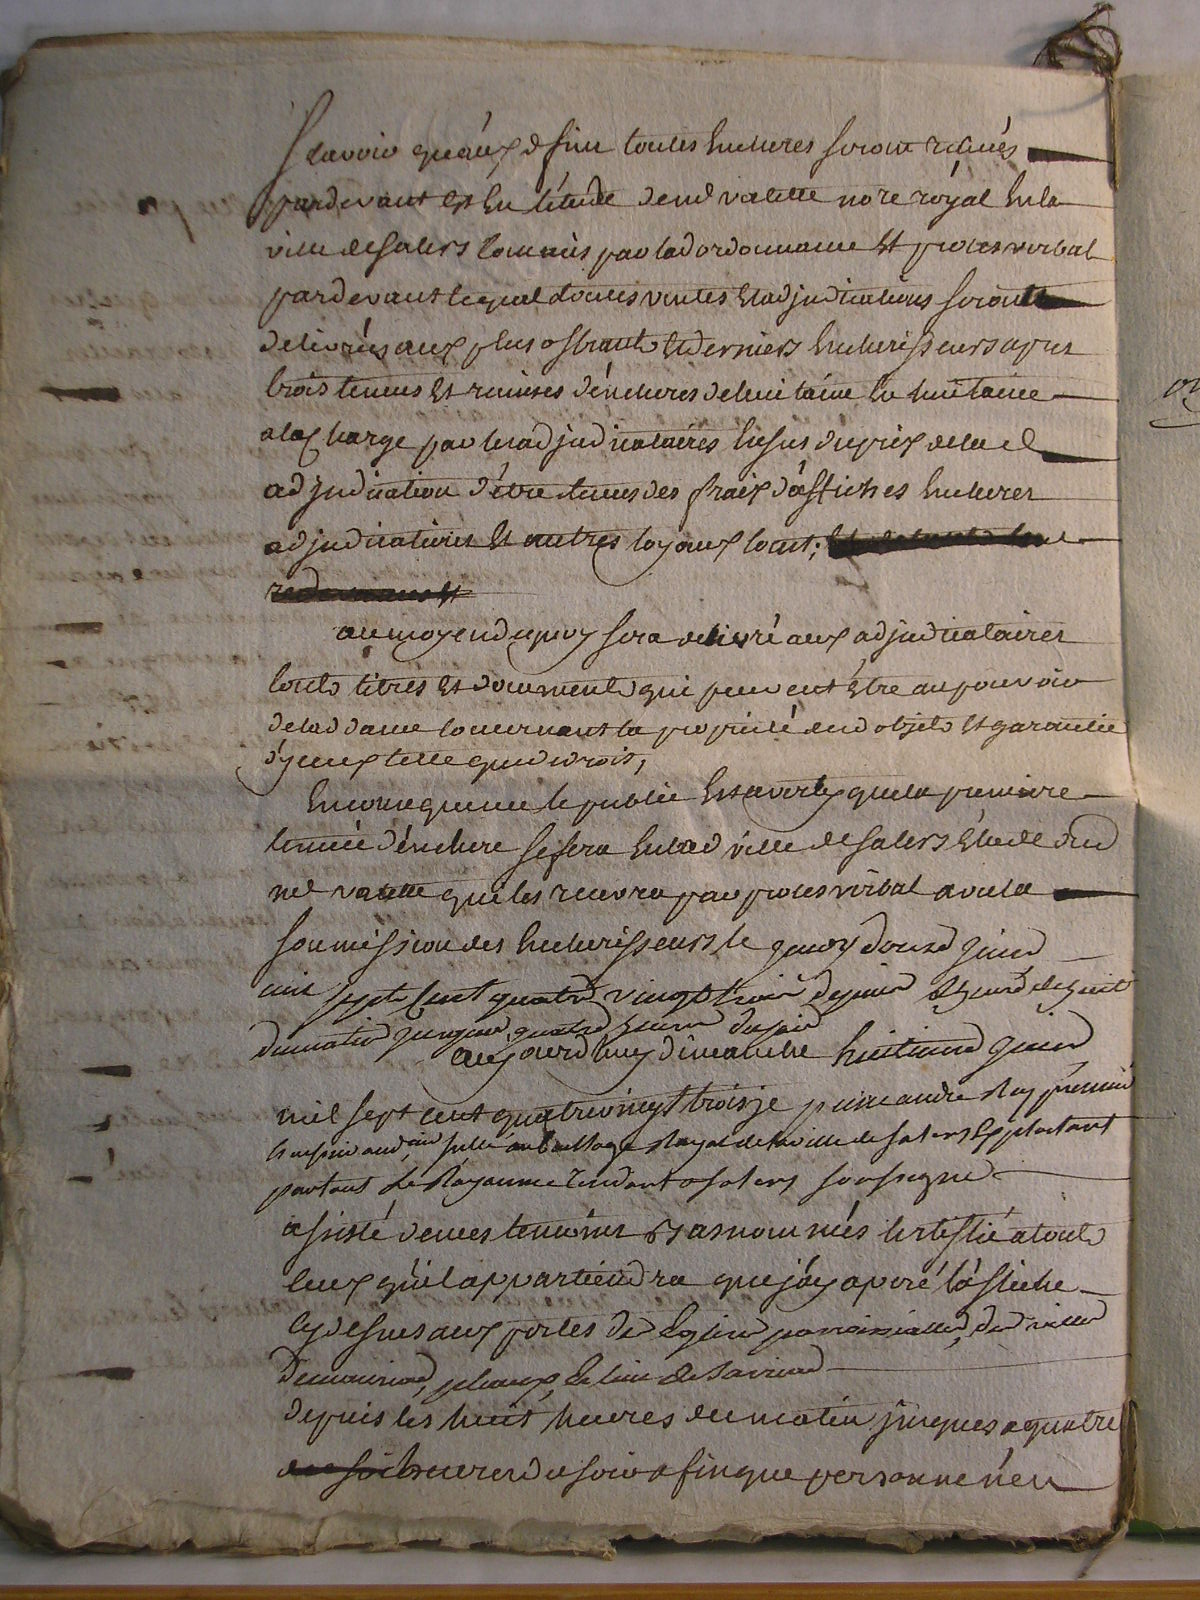 Scavoir qu'aux d fins toutes encheres seront recües
pardevant et en l'étude de me valette nore royal en la
ville de salers commis par lad ordonnance et proces verbal
pardevant lequel d toutes ventes et adjudications seront
delivrées aux plus offrants et derniers encherisseurs apres
trois tenues et remises d'encheres de huitaine en huitaine
a la charge par les adjudicataires en sus du prix de la d
adjudication d'être tenus des fraix d'affiches encheres
adjudications et autres loyaux cout;
au moyend de quoy sera delivré aux adjudicataires
touts titres et documents qui peuvent être au pouvoir
de lad dame concernant la proprieté desd objets et garantie
d'yceux telle que de droit,
En consequence le public est averty que la premiere
tenüe d'enchere se fera en lad ville de salers étude dud
me valette qui les recevra par proces verbal avec la
soumission des encherisseurs le jeudy douze juin
mil sept cent quatre vingt trois depuis heure de huit
du matin jusques quatre heure du soir
aujourd'huy dimanche huitieme juin
mil sept cent quatre vingt trois je pierre andre Roy premier
huissier aud au baillage Royal de la ville de salers Exploitant
partout le Royaume Residant a salers soussigné
assisté de mes temoins bas nommés certiffie a touts
ceux qu'il appartiendra que j'ay aposé l'affiche
cy dessus aux portes de Eglise parroissialle de ville
de mauriac, pleaux, et lieu de
depuis les huit heures du matin jusques a quatre
heures du soir a fin que personne n'en